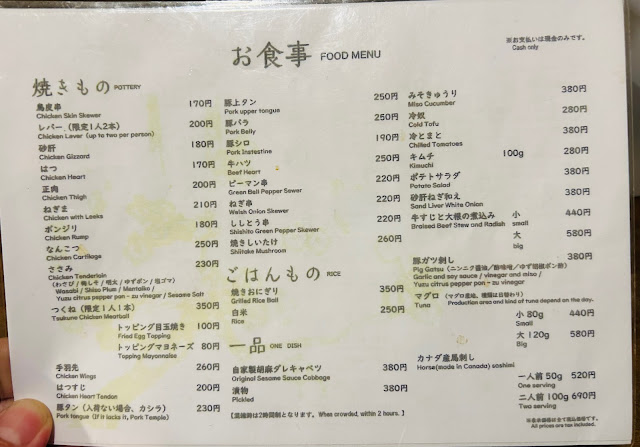 お食事 FOOD MENU
※お支払いは現金のみです。
Cash only
焼きもの POTTERY
鳥皮串 170円
Chicken Skin Skewer
レバー（限定1人2本） 200円
Chicken Lever (up to two per person)
砂肝 180円
Chicken Gizzard
はつ 170円
Chicken Heart
正肉 200円
Chicken Thigh
ねぎま 210円
Chicken with Leeks
ボンジリ 180円
Chicken Rump
なんこつ 250円
Chicken Cartilage
ささみ 230円
Chicken Tenderloin
（わさび / 梅しそ / 明太 / ゆずポン / 塩ゴマ）
Wasabi / Shiso Plum / Mentaiko /
Yuzu citrus pepper pan - zu vinegar / Sesame Salt
つくね（限定1人1本） 350円
Tsukune Chicken Meatball
トッピング目玉焼き 100円
Fried Egg Topping
トッピングマヨネーズ 80円
Topping Mayonnaise
手羽先 260円
Chicken Wings
はつすじ 200円
Chicken Heart Tendon
豚タン（入荷ない場合、カシラ） 230円
Pork tongue (If it lacks it, Pork Temple)
豚上タン 250円
Pork upper tongue
豚バラ 250円
Pork Belly
豚シロ 190円
Pork Instestine
牛ハツ 250円
Beef Heart
ピーマン串 220円
Green Bell Pepper Sewer
ねぎ串 220円
Welsh Onion Skewer
ししとう串 220円
Shishito Green Pepper Skewer
焼きしいたけ 260円
Shiitake Mushroom
ごはんもの RICE
焼きおにぎり 350円
Grilled Rice Ball
白米 250円
Rice
一品 ONE DISH
自家製胡麻ダレキャベツ 380円
Original Sesame Sauce Cabbage
漬物 380円
Pickled
【混雑時は2時間制となります。When crowded, within 2 hours.】
みそきゅうり 380円
Miso Cucumber
冷奴 280円
Cold Tofu
冷とまと 380円
Chilled Tomatoes
キムチ 100g 280円
Kimuchi
ポテトサラダ 380円
Potato Salad
砂肝ねぎ和え 380円
Sand Liver White Onion
牛すじと大根の煮込み 小 440円
Braised Beef Stew and Radish small
大 580円
big
豚ガツ刺し 380円
Pig Gatsu（ニンニク醤油／酢味噌／ゆず胡椒ポン酢）
Garlic and soy sauce / vinegar and miso /
Yuzu citrus pepper pan - zu vinegar
マグロ（マグロ産地、種類は日替わり）
Tuna Production area and kind of tuna depend on the day.
小 80g 440円
Small
大 120g 580円
big
カナダ産馬刺し
Horse(made in Canada) sashimi
一人前 50g 520円
One serving
二人前 100g 690円
Two serving
※全金額は全て税込価格です。
All prices are tax included.